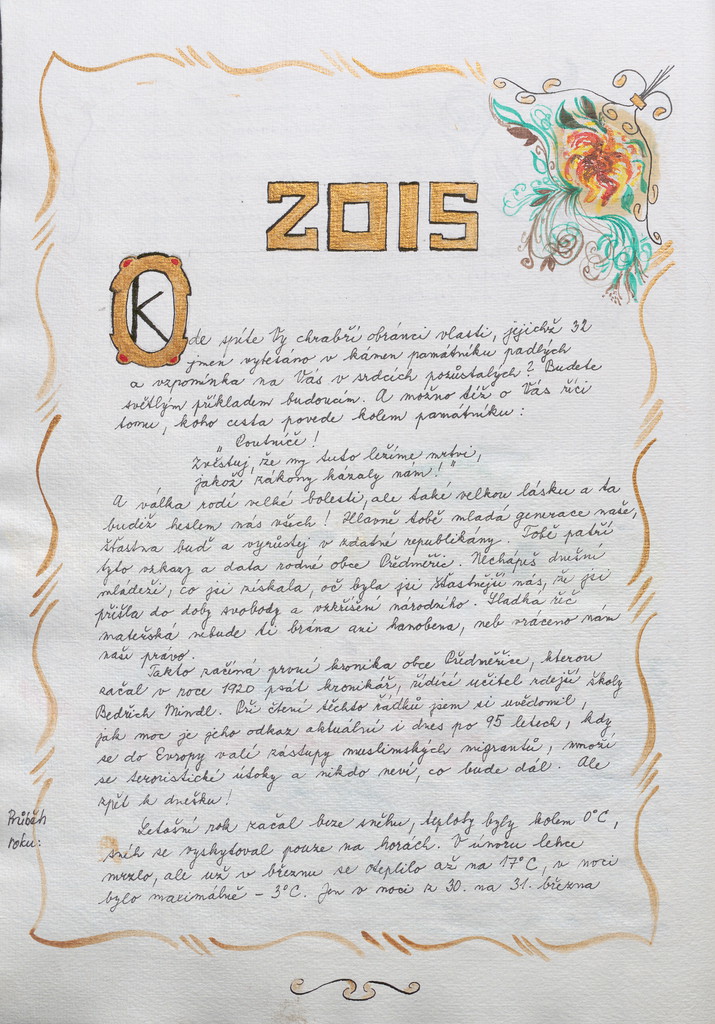 2015
Kde spíte Vy chrabří obránci vlasti, jejichž 32
jmen vytetáno v kámen památníku padlých
a vzpomínka na Vás v srdcích pozůstalých? Budete
světlým příkladem budoucím. A možno též o Vás říci
tomu, koho cesta povede kolem památníku:
„Poutníče!
Zvěstuj, že my tuto ležíme mrtvi,
jakož zákony kázaly nám!"
A válka rodí velké bolesti, ale také velkou lásku a ta
budiž heslem nás všech! Hlavně tobě mladá generace naše,
šťastna buď a vyrůstej v zdatné republikány. Tobě patří
tyto vzkazy a data rodné obce Předměřic. Nechápeš dnešní
mládeži, co jsi získala, oč byla jsi šťastnější nás, že jsi
přišla do doby svobody a vzkříšení národního. Sladká řeč
mateřská nebude ti brána ani hanobena, neb vráceno nám
naše právo.
Takto začíná první kronika obce Předměřice, kterou
začal v roce 1920 psát kronikář, řídící učitel zdejší školy
Bedřich Mindl. Při čtení těchto řádků jsem si uvědomil,
jak moc je jeho odkaz aktuální i dnes po 95 letech, kdy
se do Evropy valí zástupy muslimských migrantů, množí
se teroristické útoky a nikdo neví, co bude dál. Ale
zpět k dnešku!
Průběh
roku:
Letošní rok začal beze sněhu, teploty byly kolem 0°C,
sníh se vyskytoval pouze na horách. V únoru lehce
mrzlo, ale už v březnu se oteplilo až na 17°C, v noci
bylo maximálně – 3°C. Jen v noci z 30. na 31. března